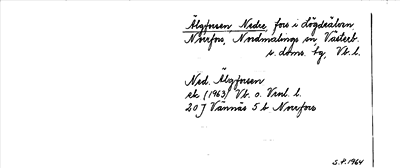 Älgforsen, Nedre, fors i Lögdeälven,
Norrfors, Nordmalings sn, Västerb.
s. doms. bg, Vb. l.
Ned. Älgforsen
ek (1963) Vb. o. Vnl. l.
20 J Vännäs 5 b Norrfors
S.P. 1964